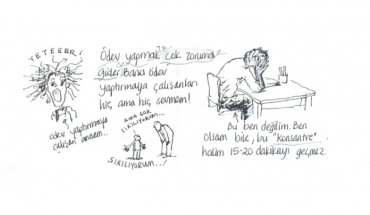 YETEEER!
Ödev yapmak çok zoruma
gider. Bana ödev
yaptırmaya çalışanları
hiç, ama hiç sevmem!
ödev yaptırmaya
çalışan annem...
AMA ÇOK
SIKILIYORUM...
SIKILIYORUM...
Bu ben değilim. Ben
olsam bile, bu "konsantre"
halim 15-20 dakikayı geçmez.